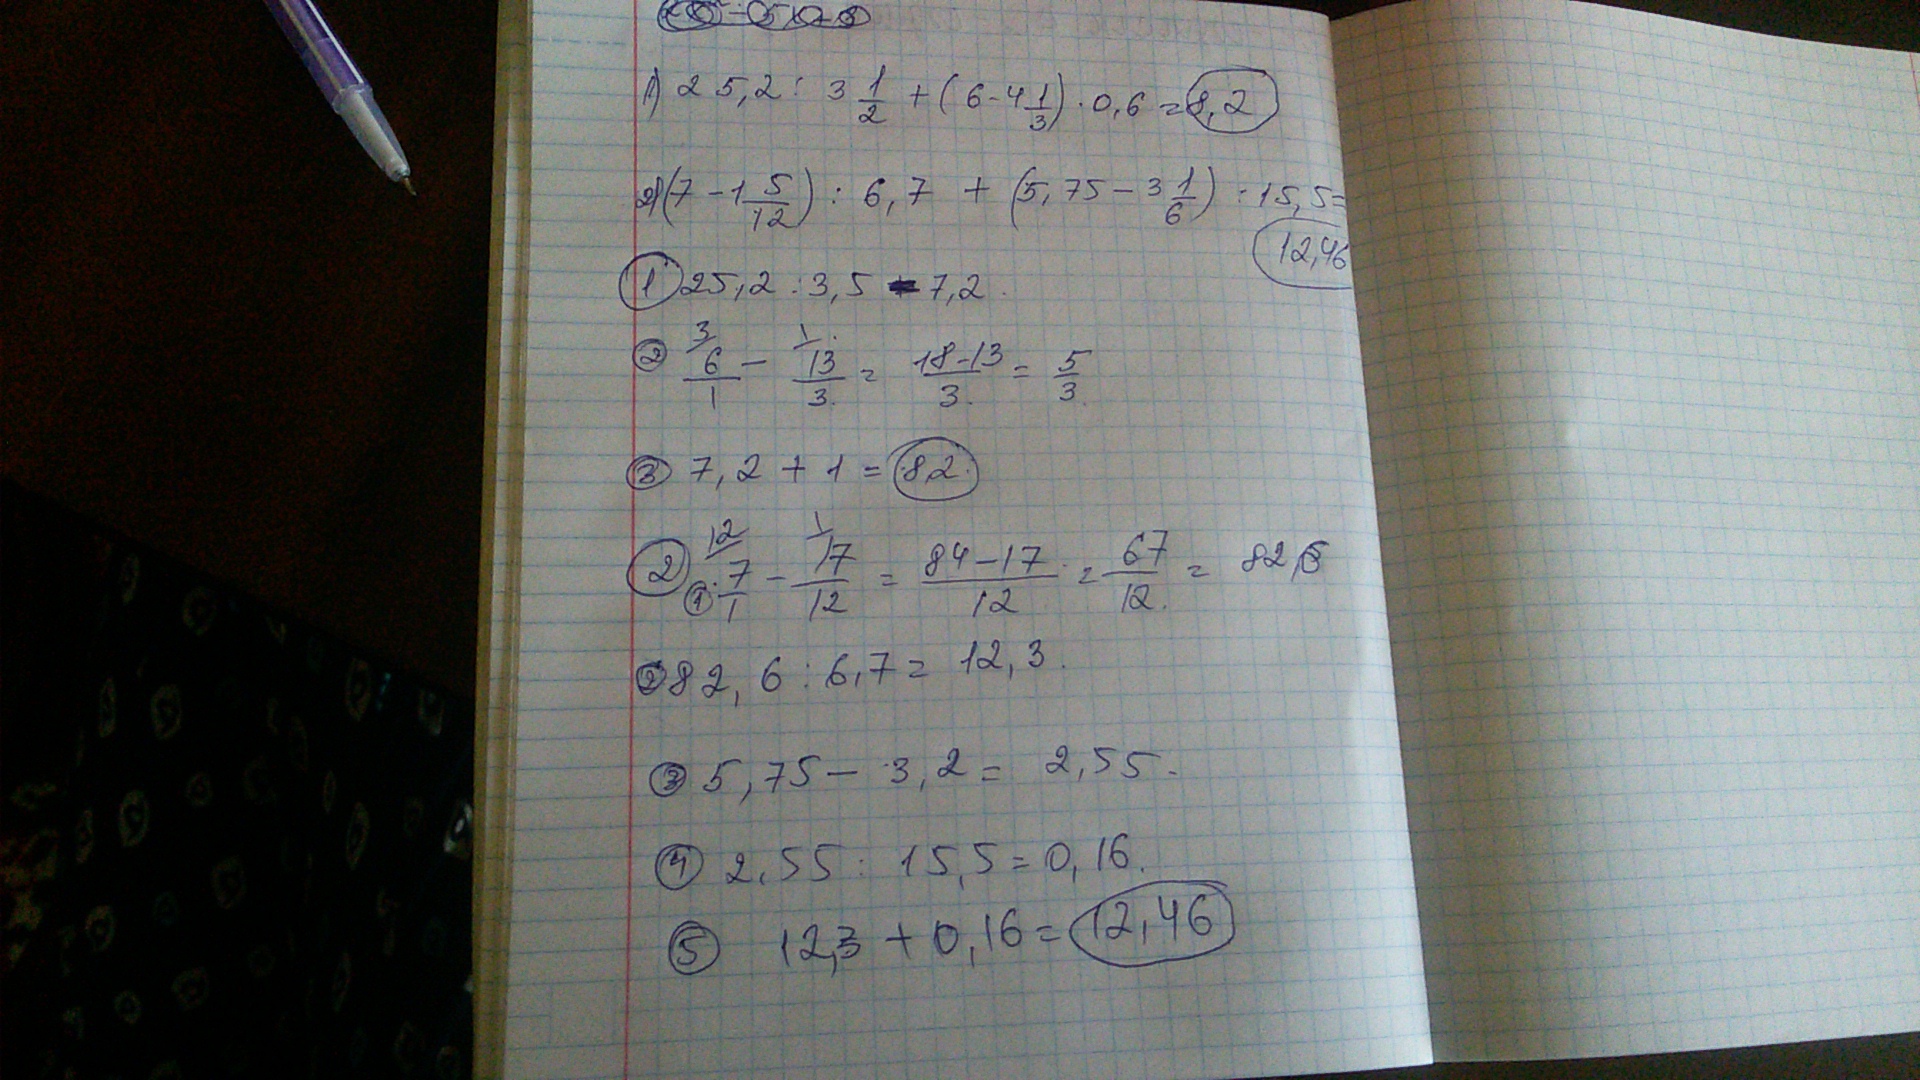 1) 25,2 : 3 1/2 + (6 - 4 1/3) · 0,6 = 8,2
2) (7 - 1 5/12) : 6,7 + (5,75 - 3 1/6) : 15,5 =
12,46
① 25,2 : 3,5 = 7,2.
② 3/ 6/1 - 1/ 13/3 = 18-13/3 = 5/3
③ 7,2 + 1 = 8,2.
② ① 12/ 7/1 - 1/ 17/12 = 84-17/12 = 67/12 = 82,6
② 82,6 : 6,7 = 12,3.
③ 5,75 - 3,2 = 2,55.
④ 2,55 : 15,5 = 0,16.
⑤ 12,3 + 0,16 = 12,46